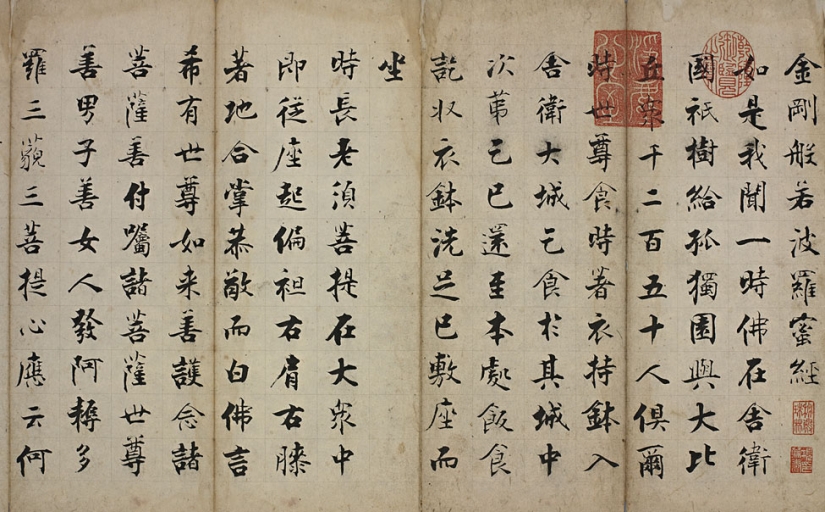 金剛般若波羅蜜經
如是我聞一時佛在舍衛
國祇樹給孤獨園與大比
丘衆千二百五十人俱爾
時世尊食時著衣持鉢入
舍衛大城乞食於其城中
次苐乞已還至本處飯食
訖收衣鉢洗足已敷座而
坐
時長老湏菩提在大衆中
即從座起偏袒右肩右膝
著地合掌恭敬而白佛言
希有世尊如来善護念諸
菩薩善付囑諸菩薩世尊
善男子善女人發阿耨多
羅三藐三菩提心應云何